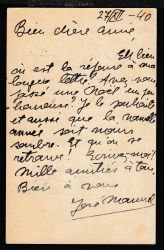 27/XII - 40
Bien chère amie,
Eh bien
où est la réponse à ma
longue lettre? Avez vous
passé une Noël un peu
heureuse? Je le souhaite
et aussi que la nouvelle
année soit moins
sombre. Et qu'on se
retrouve! Ecrivez-moi!
Mille amitiés à tous
Bien à vous
José